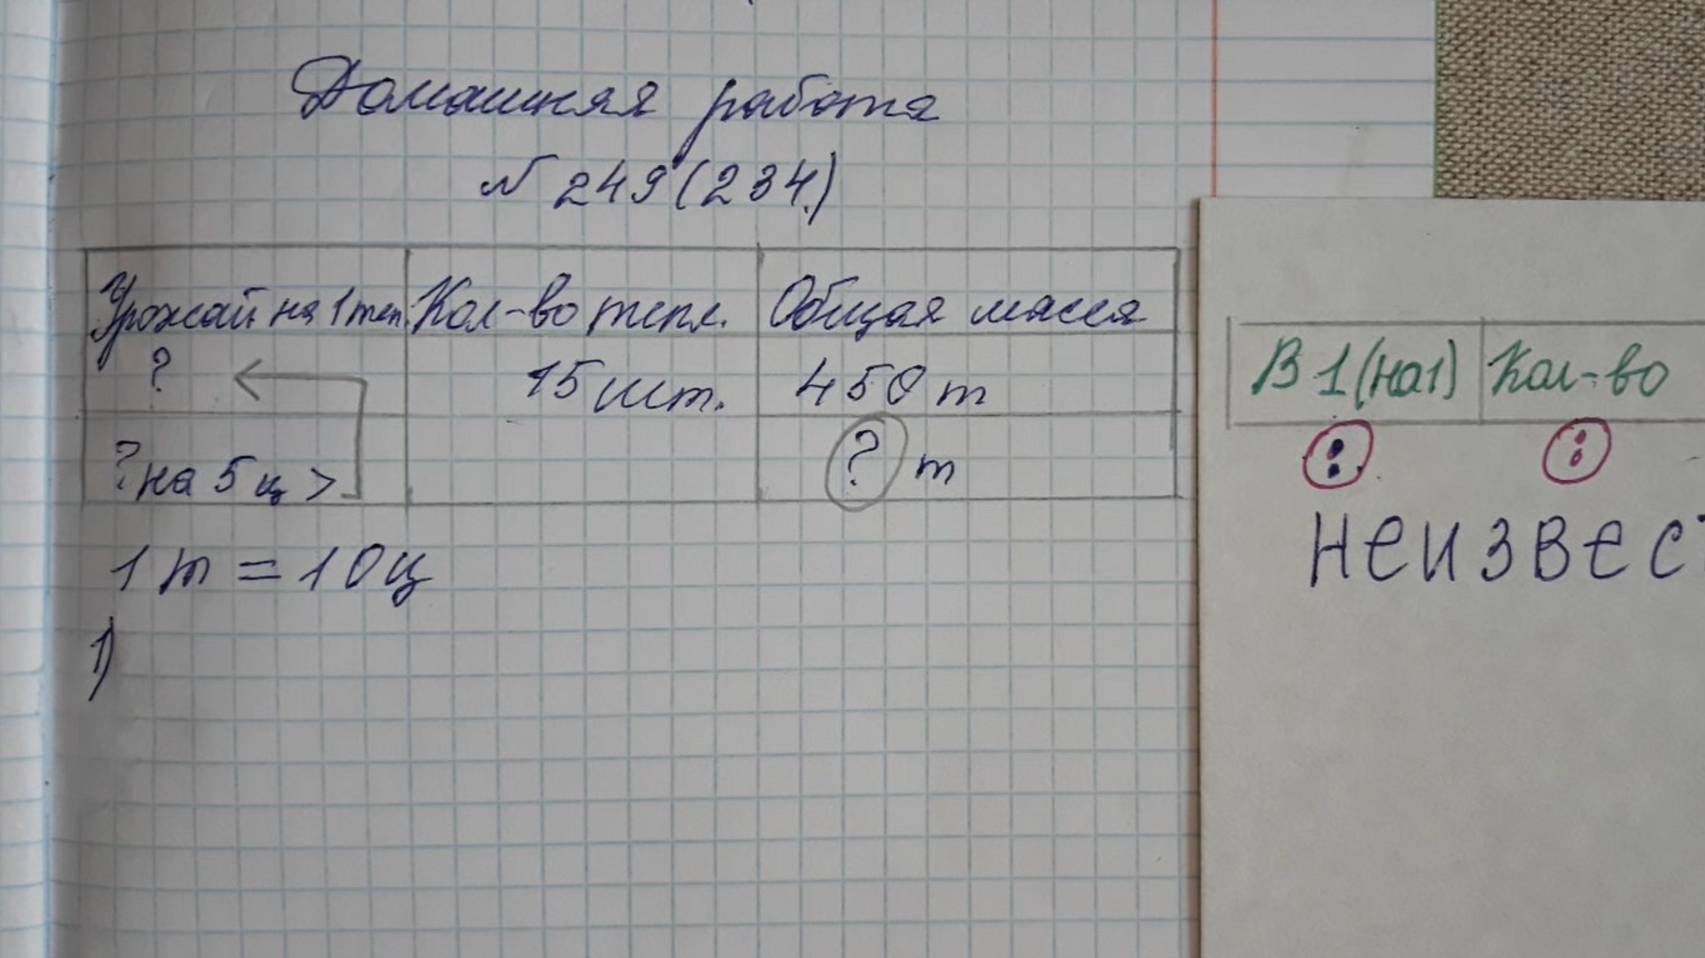 Домашняя работа
№ 249 (234.)
Урожай на 1 теп. Кол-во тепл. Общая масса
? 15 шт. 450 т
? на 5 ц > ? т
1 т = 10 ц
1)
В 1 (на 1) Кол-во
неизвес